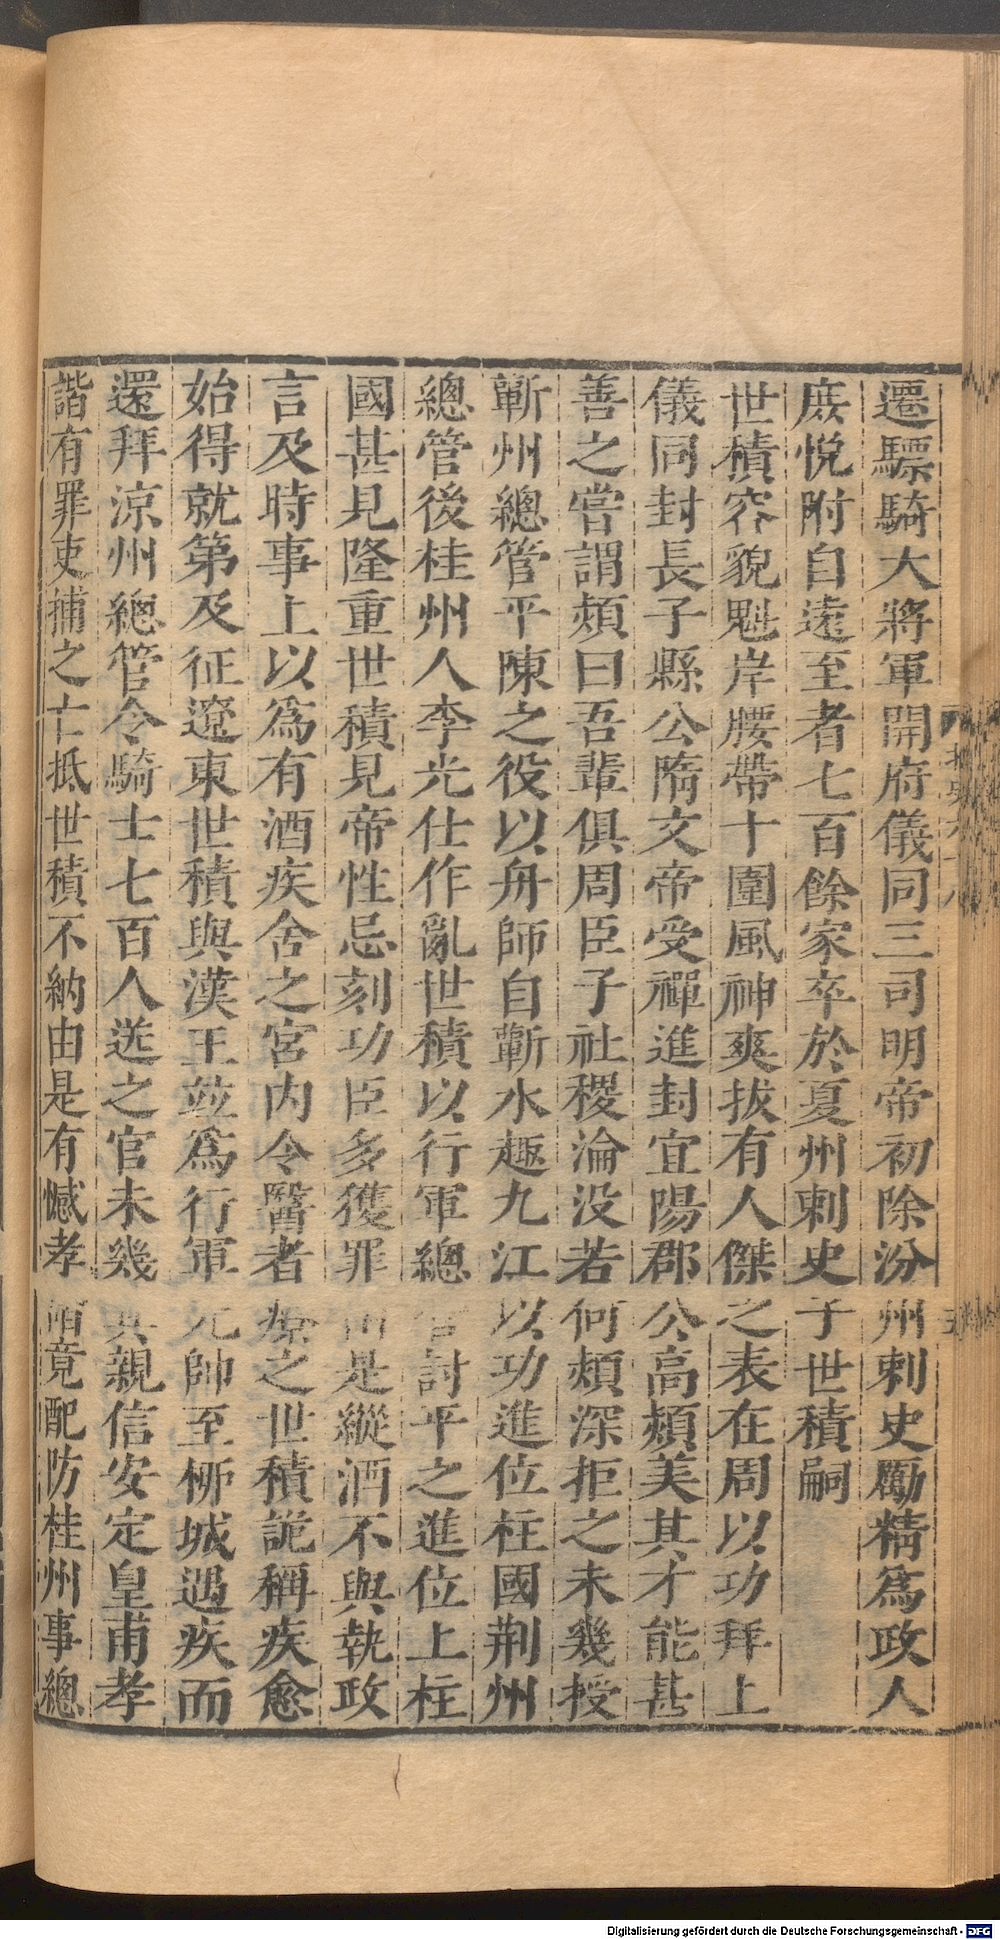 遷驃騎大將軍開府儀同三司明帝初除汾州刺史勵精爲政人
庶悅附自遠至者七百餘家卒於夏州刺史子世積嗣
世積容貌魁岸腰帶十圍風神爽拔有人傑之表在周以功拜上
儀同封長子縣公隋文帝受禪進封宜陽郡公高熲美其才能甚
善之嘗謂熲曰吾輩俱周臣子社稷淪没若何熲深拒之未幾授
蘄州總管平陳之役以舟師自蘄水趣九江以功進位柱國荆州
總管後桂州人李光仕作亂世積以行軍總管討平之進位上柱
國甚見隆重世積見帝性忌刻功臣多獲罪由是縱酒不與執政
言及時事上以爲有酒疾舍之宮内令醫者療之世積詭稱疾愈
始得就第及征遼東世積與漢王竝爲行軍元帥至柳城遇疾而
還拜涼州總管令騎士七百人送之官未幾其親信安定皇甫孝
諧有罪吏捕之亡抵世積不納由是有憾孝諧竟配防桂州事總
Digitalisierung gefördert durch die Deutsche Forschungsgemeinschaft - DFG